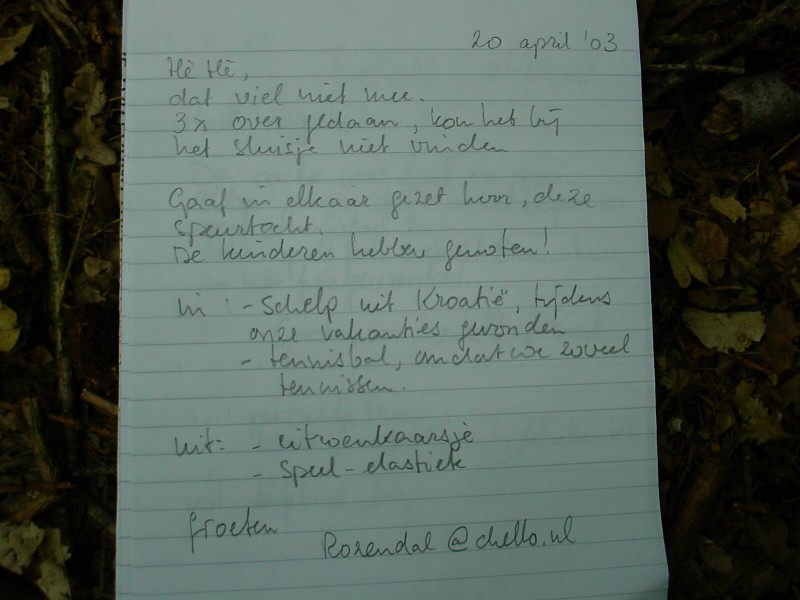 20 april '03
Hè Hè,
dat viel niet mee.
3x over gedaan, kon het bij
het sluisje niet vinden
Gaaf in elkaar gezet hoor, deze
speurtocht.
De kinderen hebben genoten!
in: - Schelp uit Kroatië, tijdens
onze vakanties gevonden
- tennisbal, omdat we zoveel
tennissen.
uit: - citroenkaarsje
- speel-elastiek
groeten
Rosendal@chello.nl